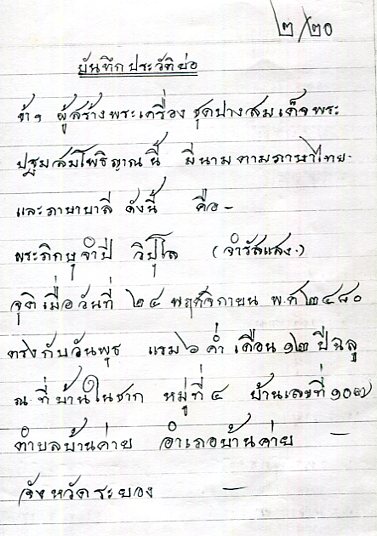 ๒/๒๐
บันทึกประวัติย่อ
ข้าฯ ผู้สร้างพระเครื่อง ชุดปางสมเด็จพระ
ปฐมสมโพธิญาณนี้ มีนามตามภาษาไทย
และภาษาบาลี ดังนี้ คือ-
พระภิกษุจำปี วิปุโล (จำรัสแสง)
จุติเมื่อวันที่ ๒๔ พฤศจิกายน พ.ศ ๒๔๘๐
ตรงกับวันพุธ แรม ๖ ค่ำ เดือน ๑๒ ปีฉลู
ณ ที่บ้านในชาก หมู่ที่ ๔ บ้านเลขที่ ๑๐๗
ตำบลบ้านค่าย อำเภอบ้านค่าย –
จังหวัดระยอง –